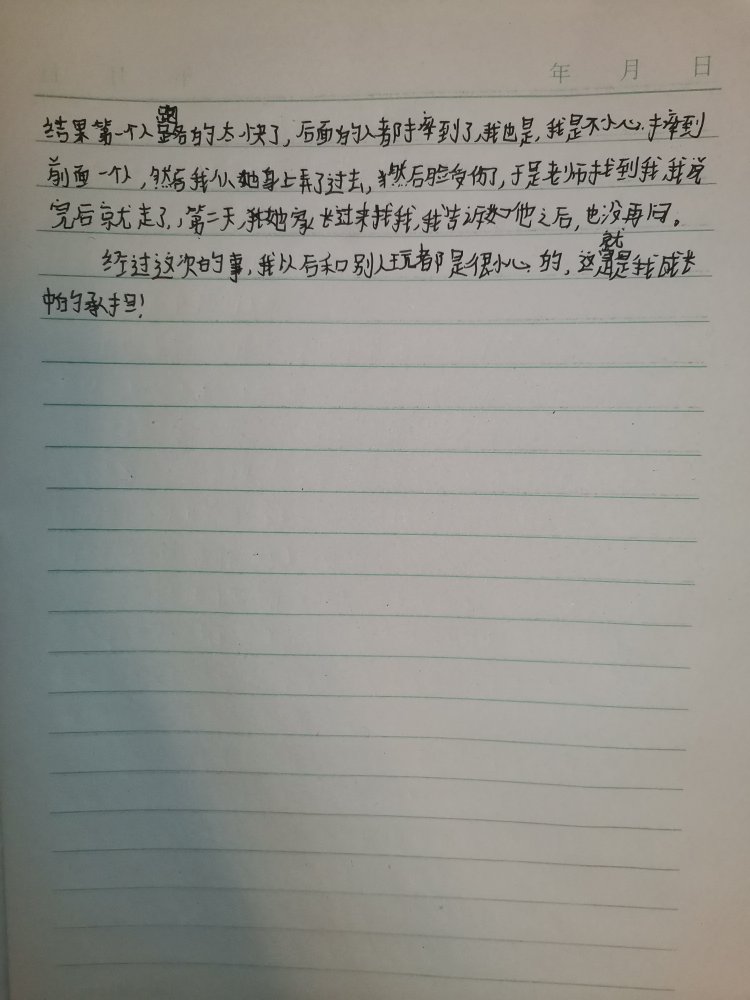 年 月 日
结果第一个人跑的太快了，后面的人都摔到了，我也是，我是不小心摔到
前面一个人，然后我从她身上弄了过去，然后脸受伤了，于是老师找到我，我说
完后就走了，第二天，她家长过来找我，我告诉他之后，也没再问。
经过这次的事，我以后和别人玩都是很小心的，这就是我成长
中的承担！